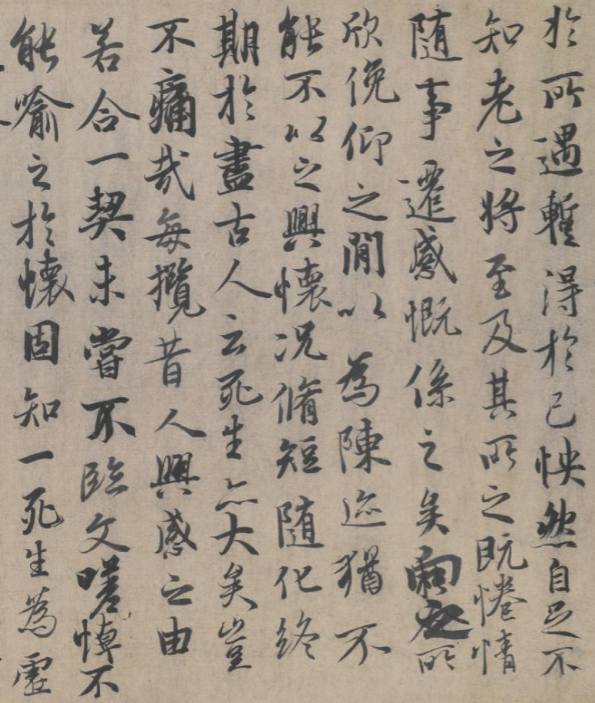 於所遇暫得於己怏然自足不
知老之將至及其所之既惓情
隨事遷感慨係之矣向之所
欣俛仰之閒以為陳迹猶不
能不以之興懷況脩短隨化終
期於盡古人云死生亦大矣豈
不痛哉每攬昔人興感之由
若合一契未嘗不臨文嗟悼不
能喻之於懷固知一死生為虛